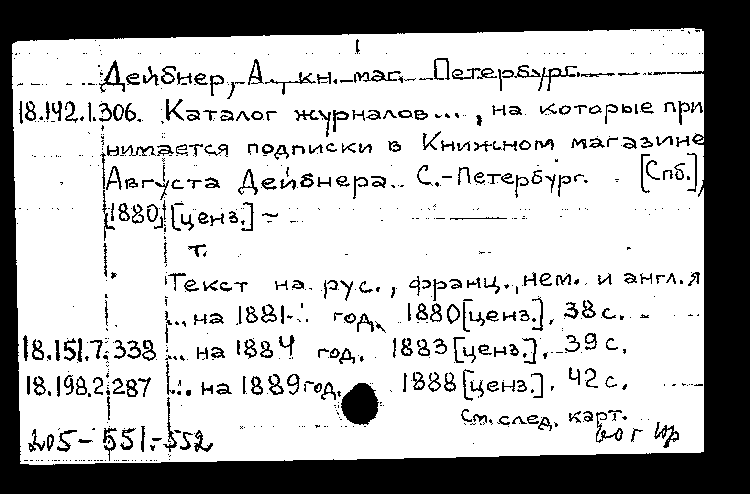 Дейбнер, А., кн. маг. Петербург.
18.142.1.306. Каталог журналов..., на которые при
нимается подписки в Книжном магазине
Августа Дейбнера. С.-Петербург. [Спб.],
[1880, [ценз.] -
т.
Текст на рус., франц., нем. и англ. я
... на 1881 год. 1880 [ценз.], 38 с. -
18.151.7.338 ... на 1884 год. 1883 [ценз.], 39 с.
18.198.2.287 ... на 1889 год. 1888 [ценз.], 42 с.
см. след. карт.
205-551-552